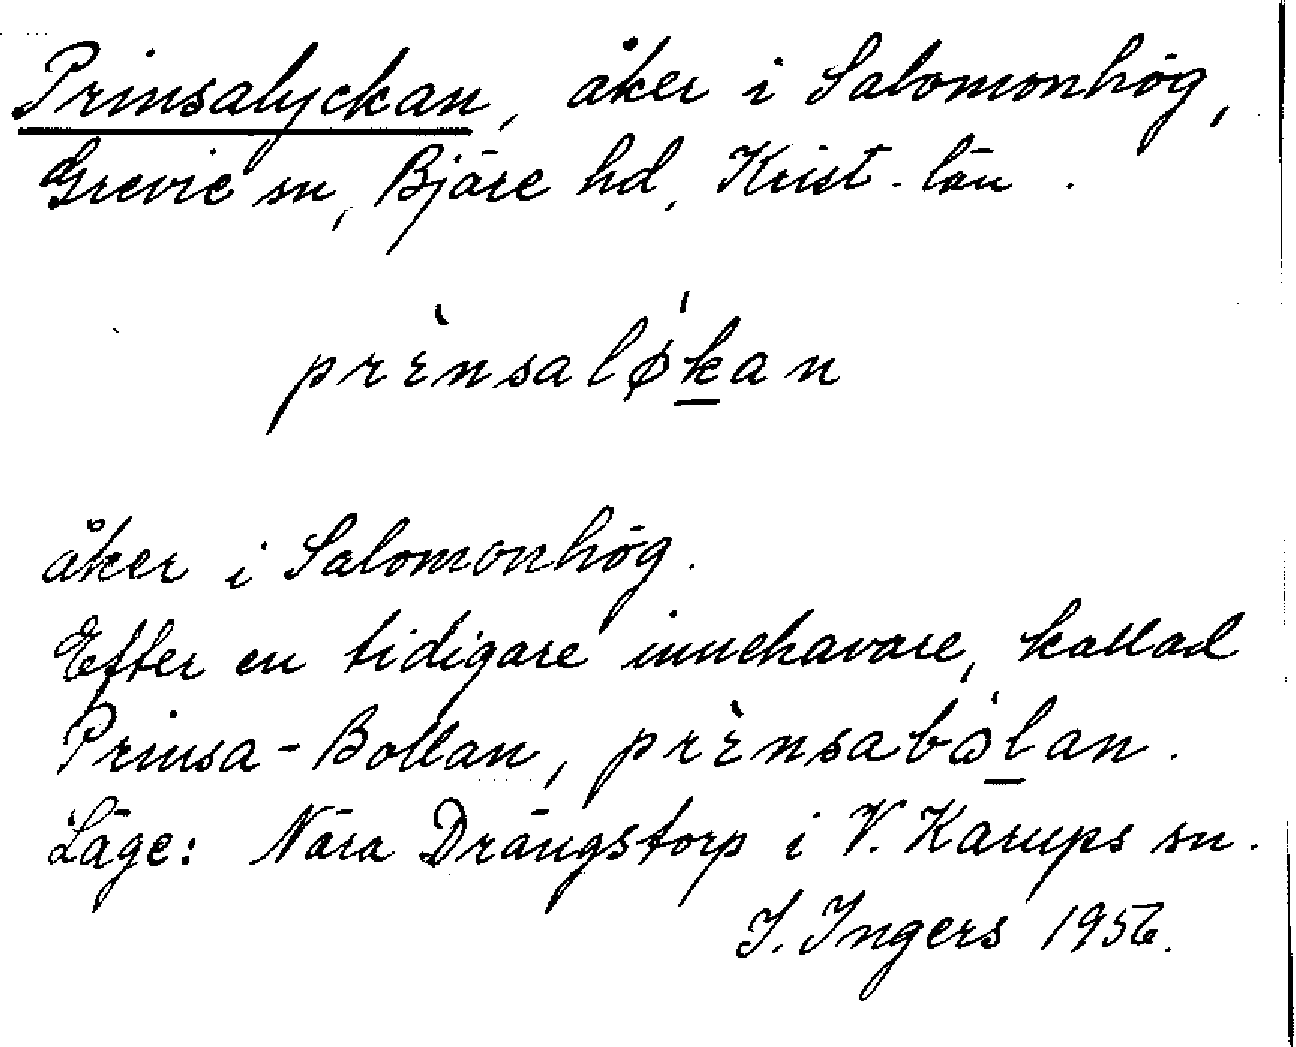 Prinsalyckan, åker i Salomonhög,
Grevie sn, Bjäre hd, Krist. län.
prὲnsaløkan
åker i Salomonhög.
Efter en tidigare innehavare, kallad
Prinsa-Bollan, prὲnsabålan.
Läge: Nära Drängstorp i V. Karups sn.
I. Ingers 1956.